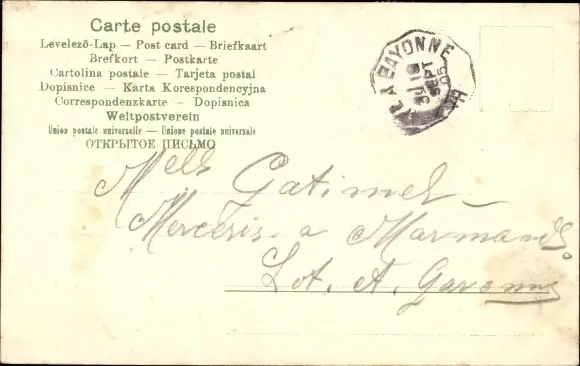 Carte postale
Levelező-Lap — Post card — Briefkaart
Brefkort — Postkarte
Cartolina postale — Tarjeta postal
Dopisnice — Karta Korespondencyjna
Correspondenzkarte — Dopisnica
Weltpostverein
Union postale universelle — Unione postale universale
ОТКРЫТОЕ ПИСЬМО
A BAYONNE
05
Melle Gatimel
Merceris. a Marmande.
Lot. et. Garonne